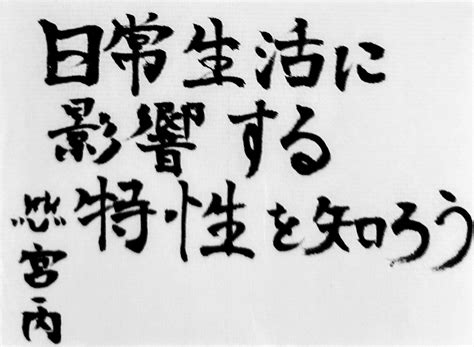 日常生活に
影響する
特性を知ろう
悠宮内